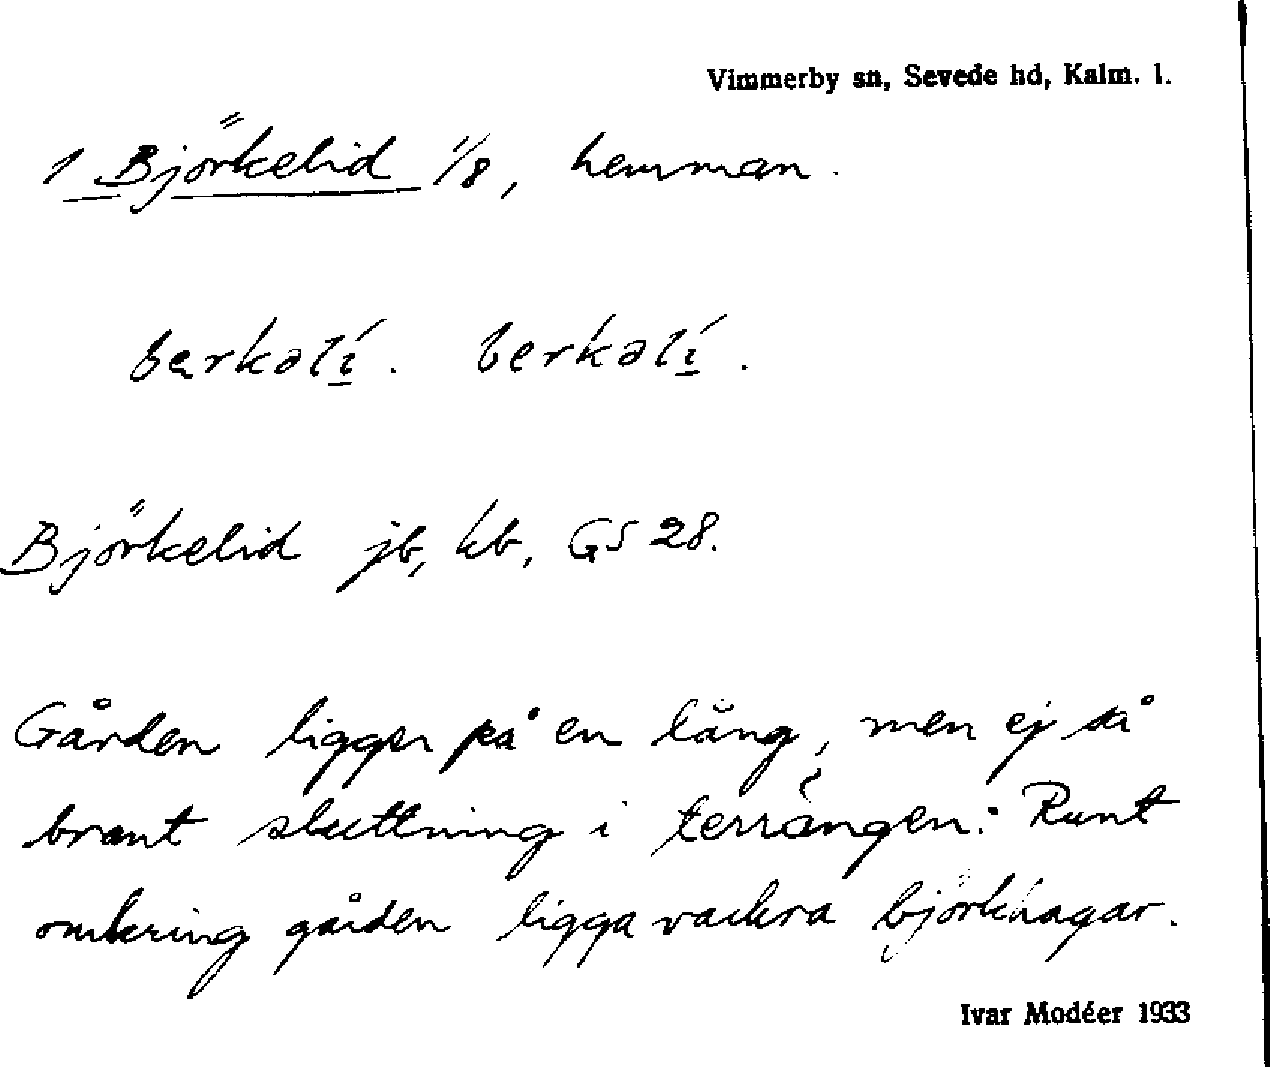 Vimmerby sn, Sevede hd, Kalm. l.
1 Björkelid 1/8, hemman.
bęrkəlí̱. berkəlí̱.
Björkelid jb, kb, GS 28.
Gården ligger på en lång, men ej så
brant sluttning i terrängen. Runt
omkring gården ligga vackra björkhagar.
Ivar Modéer 1933